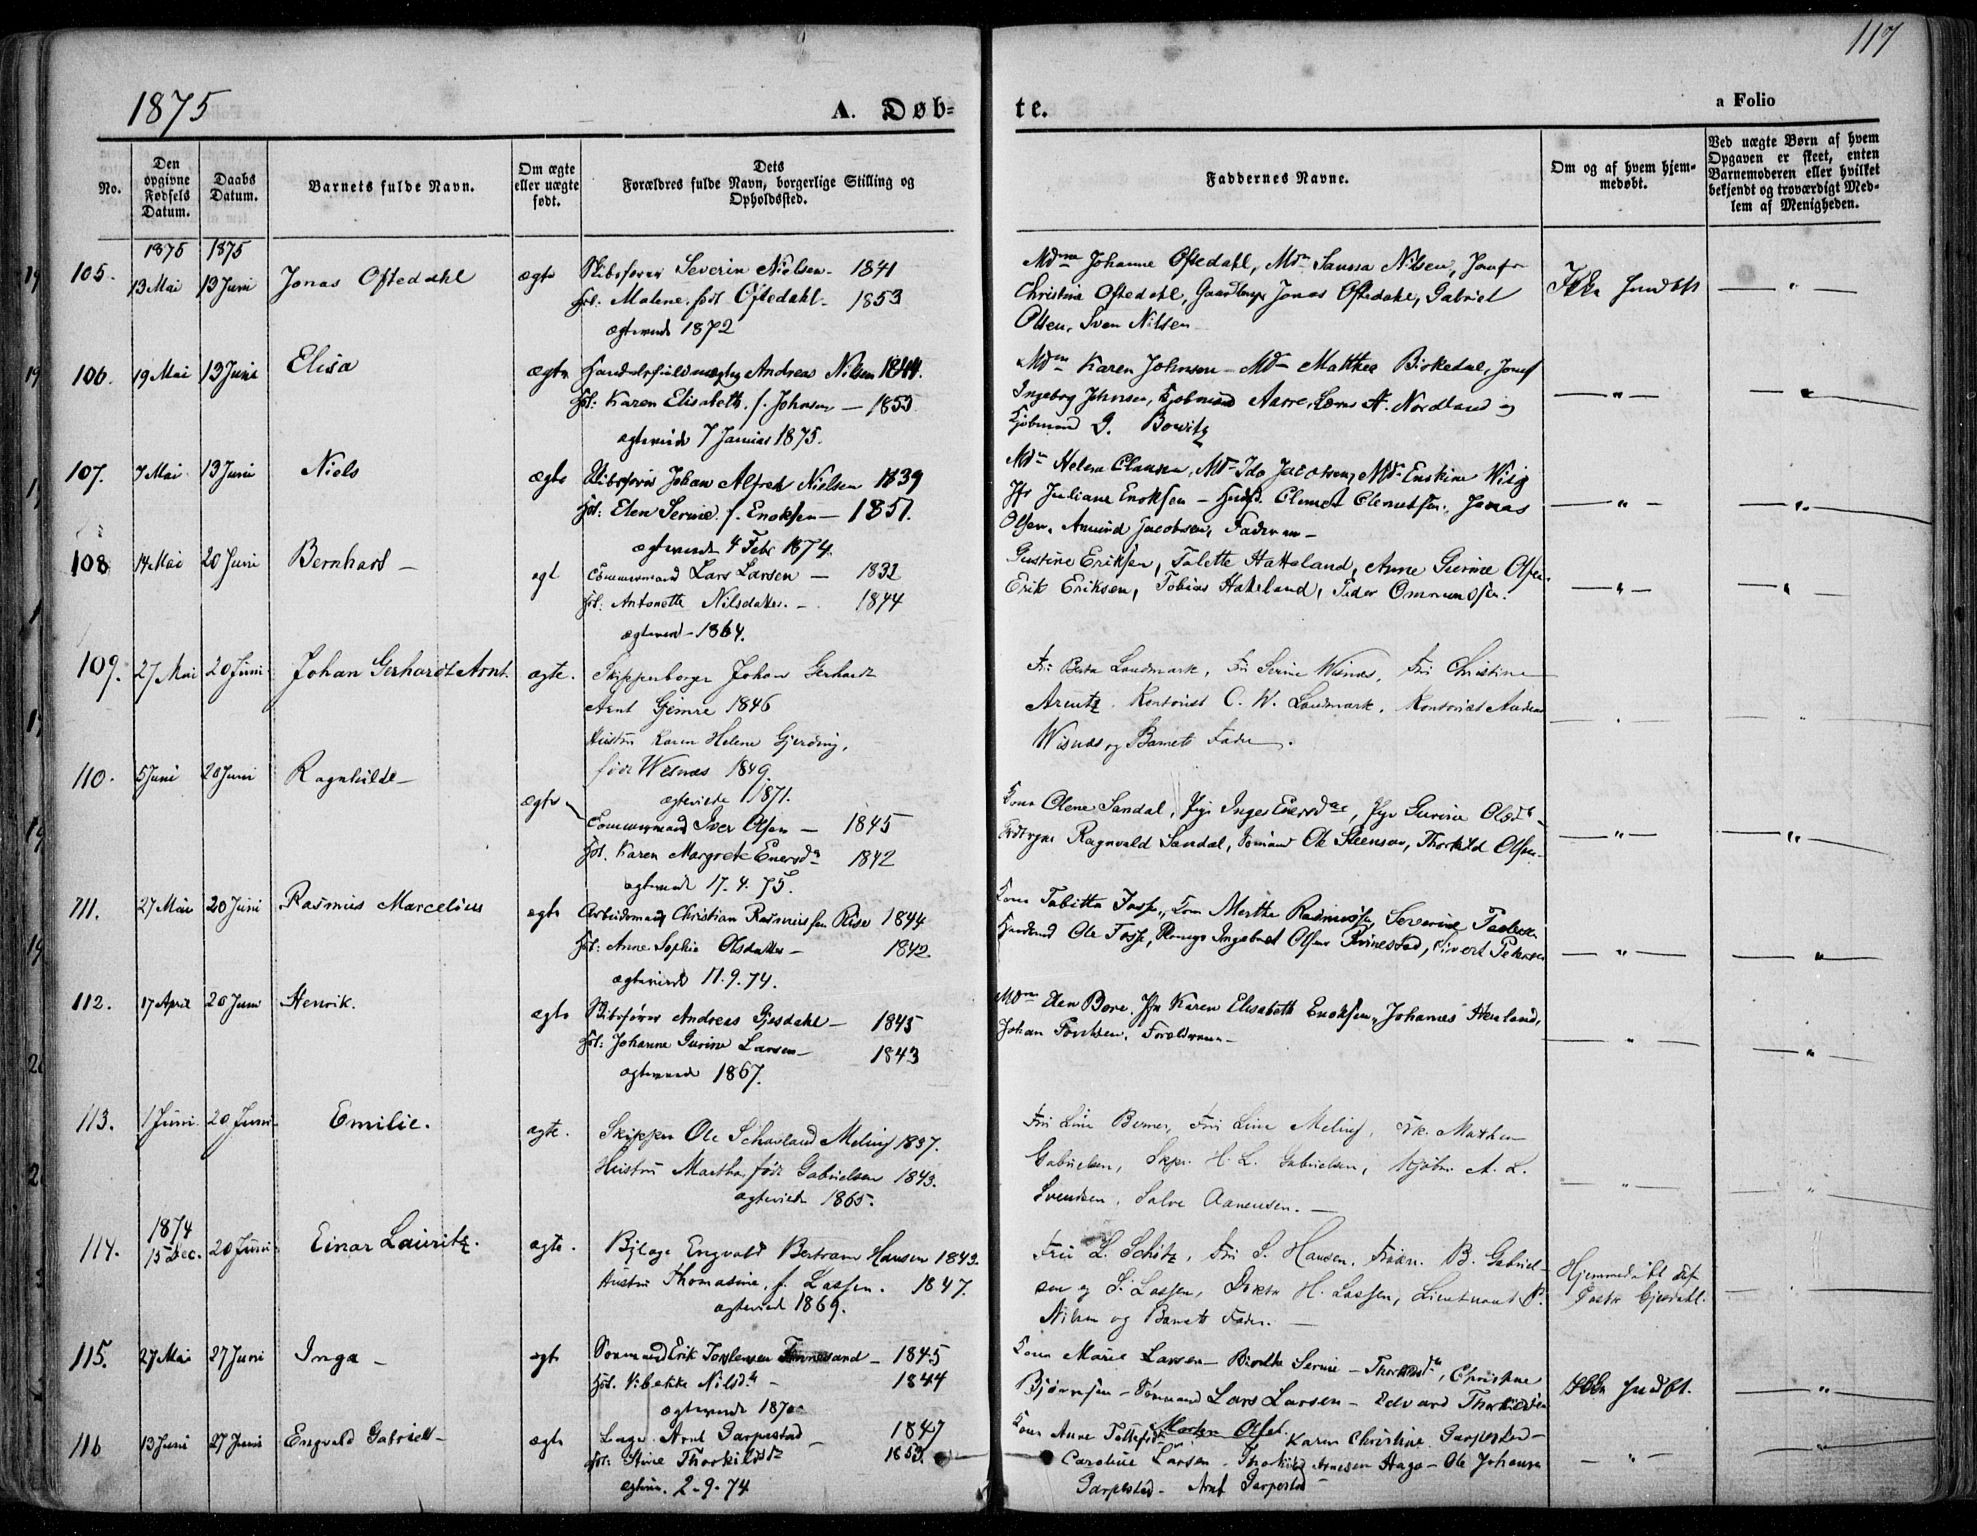 117
1875
A. Døb-
te.
a Folio
No.
Den opgivne Fødsels Datum.
Daabs Datum.
Barnets fulde Navn.
Om ægte eller uægte født.
Dets Forældres fulde Navn, borgerlige Stilling og Opholdssted.
Faddernes Navne.
Om og af hvem hjem-
medøbt.
Ved uægte Børn af hvem
Opgaven er skeet, enten
Barnemoderen eller hvilket
bekjendt og troværdigt Med-
lem af Menigheden.
1875 1875
105. 13 Mai 13 Juni Jonas Oftedahl ægte Skibsfører Severin Nielsen - 1841
Hst: Malene født Oftedahl - 1853
ægteviede 1872
Mdm Johanne Oftedahl, Mdm Nilsen, Jomfr
Christine Oftedahl, Jonas Oftedahl, Gabriel
Olsen, Sven Nilsen
Ikke
106. 19 Mai 13 Juni Elisa ægte Andreas Nilsen 1844.
Hst: Karen Elisabeth f. Johnsen - 1853.
ægteviede 7 Januar 1875.
Mdm Karen Johnsen - Mdm Matthea Birkedal, Jomf
Ingeborg Johnsen, Kjøbmand Aarre, A. Nordland og
Kjøbmand G. Bowitz
107. 7 Mai 13 Juni Niels ægte Skibsfører Johan Alfred Nielsen 1839
Hst: Elen Serine f. Enoksen - 1851.
ægteviede 4 Febr 1874.
Mdm Helene Clausen, Mdm Ida Jacobsen, Mdm Enskine Wiig
Jfr Juliane Enoksen - Clemet Clemetsen, Jonas
Olsen, Amund Jacobsen, Faderen -
108 14 Mai 20 Juni Bernhard - ægt Tømmermand Lars Larsen - 1832
Hst. Antonette Nilsdatter - 1844
ægteviede - 1864.
Gustine Eriksen, Talette Hatteland, Anne Gurine Olsen
Erik Eriksen, Tobias Hakeland, Peder Ommundsen.
109. 27 Mai 20 Juni Johan Gerhardt Arnt. ægte. Skipperborger Johan Gerhardt
Arnt Gjemre 1846
Hustru Karen Helene Gjerding,
født Wisnæs 1849.
ægteviede 1871.
Fru Berta Landmark, Fru Serine Wisnæs, Fru Christine
Arentz, Kontorist C. W. Landmark, Kontorist Andreas
Wisnæs og Barnets Fader.
110. 5 Juni 20 Juni Ragnhilde - ægte Tømmermand Iver Olsen - 1845
Hst. Karen Margrete Enersd. 1842
ægteviede 17. 4. 75.
Kone Olene Sandal, Pige Inger Enersd., Pige Gurine Olsd.
Ragnvald Sandal, Sømand Ole Steensen, Thorkild Olsen
111. 27 Mai 20 Juni Rasmus Marcelius ægte Arbeidsmand Christian Rasmussen Riise 1844
Hst: Anne Sophie Olsdatter - 1842.
ægteviede 11. 9. 74.
Kone Tabitta Fosse, Kone Merthe Rasmussen, Severine
Ole Fosse, Ingebret Olsen Sivert Petersen
112. 17 April 20 Juni Henrik. ægte Skibsfører Andreas Gjesdahl - 1845
Hst: Johanne Gurine Larsen - 1843
ægteviede 1867.
Mdm Elen Bore, Jfr Karen Elisabeth Enoksen, Johannes Heuland,
Johan Forældrene -
113. 1 Juni 20 Juni Emilie. ægte. Skipper Ole Schavland Meling 1837.
Hustru Martha, født Gabrielsen 1843.
ægteviede 1865.
Fru Line Berner, Fru Line Meling, Frk. Mathea
Gabrielsen, Skpr. H. L. Gabrielsen, Kjøbm. A. L.
Svendsen, Salve Aanensen. -
1874
114. 15 Dec. 20 Juni Einar Lauritz. ægte. Engvald Bertram Hansen 1843.
Hustru Thomasine, f. Lassen. 1847.
ægteviede 1869.
Fru L. Schötz, Fru S. Hansen, Frøkn. B. Gabriel-
sen og S. Lassen, H. Lassen, Lieutnant P.
Nilsen og Barnets Fader. -
Hjemmedøbt af
Pastor Gjesdahl.
115. 27 Mai 27 Juni Inga - ægte Sømand Erik Torstensen - 1845
Hst. Vibekke Nilsd. - 1844
ægteviede 1870
Kone Marie Larsen - Serine Thorkildsd., Christine
Bjørnsen - Sømand Lars Larsen - Edvard Thorkildsen
Ikke
116 13 Juni 27 Juni Engvald Gabriel - ægte Arnt Garpestad - 1847
Hst: Stine Thorkildsd. 1853
ægtev. 2 - 9 - 74
Kone Anne Morten Olsen. Karen Christine Garpestad -
Caroline Larsen - Thorkild Arnesen Haga - Ole Johansen
Garpestad - Arnt Garpestad